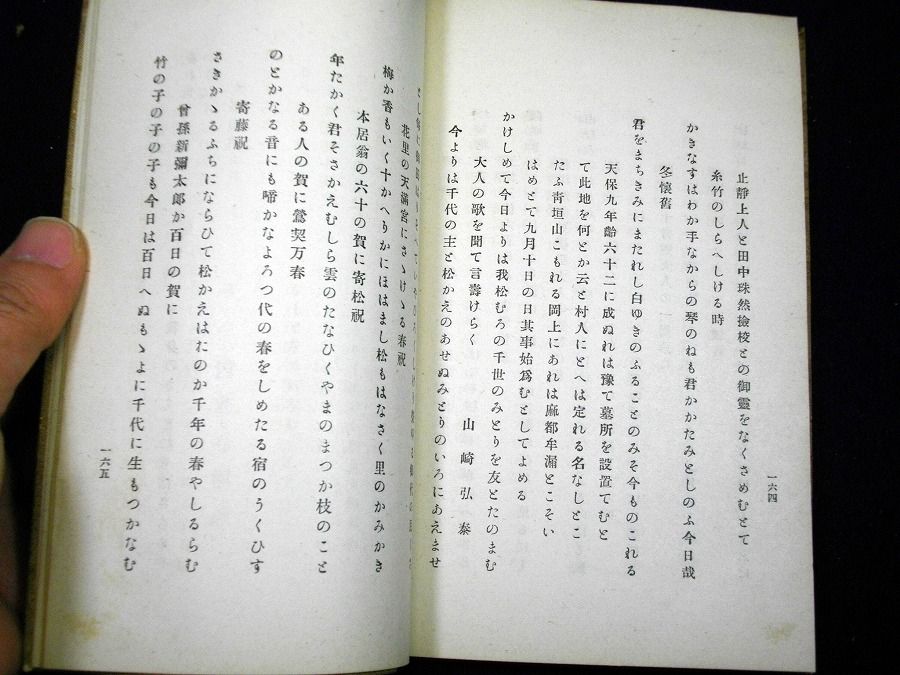 止靜上人と田中珠然撿校との御靈をなくさめむとて
糸竹のしらへしける時
かきなすはわか手なからの琴のねも君かかたみとしのふ今日哉
冬懷舊
君をまちきみにまたれし白ゆきのふることのみそ今ものこれる
天保九年齡六十二に成ぬれは豫て墓所を設置てむと
て此地を何とか云と村人にとへは定れる名なしとこ
たふ靑垣山こもれる岡上にあれは麻都牟漏とこそい
はめとて九月十日の日其事始爲むとしてよめる
かけしめて今日よりは我松むろの千世のみとりを友とたのまむ
大人の歌を聞て言壽けらく
山崎弘泰
今よりは千代の主と松かえのあせぬみとりのいろにあえませ
一六四
花里の天滿宮にさゝける春祝
梅か香もいく十かへりかにほはまし松もはなさく里のかみかき
本居翁の六十の賀に寄松祝
年たかく君そさかえむしら雲のたなひくやまのまつか枝のこと
ある人の賀に鶯契万春
のとかなる音にも啼かなよろつ代の春をしめたる宿のうくひす
寄藤祝
さきかゝるふちにならひて松かえはたのか千年の春やしるらむ
曾孫新彌太郎か百日の賀に
竹の子の子の子も今日は百日へぬもゝよに千代に生もつかなむ
一六五